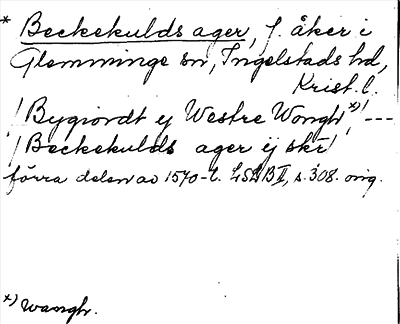 * Beckekulds ager, f. åker i
Glemminge sn, Ingelstads hd,
Krist. l.
/Bygiordt ij Westre Wongh x)/ ---
/Beckekulds ager ij skr/
förra delen av 1570-t. LSLB II, s. 308. orig.
x) wangh.